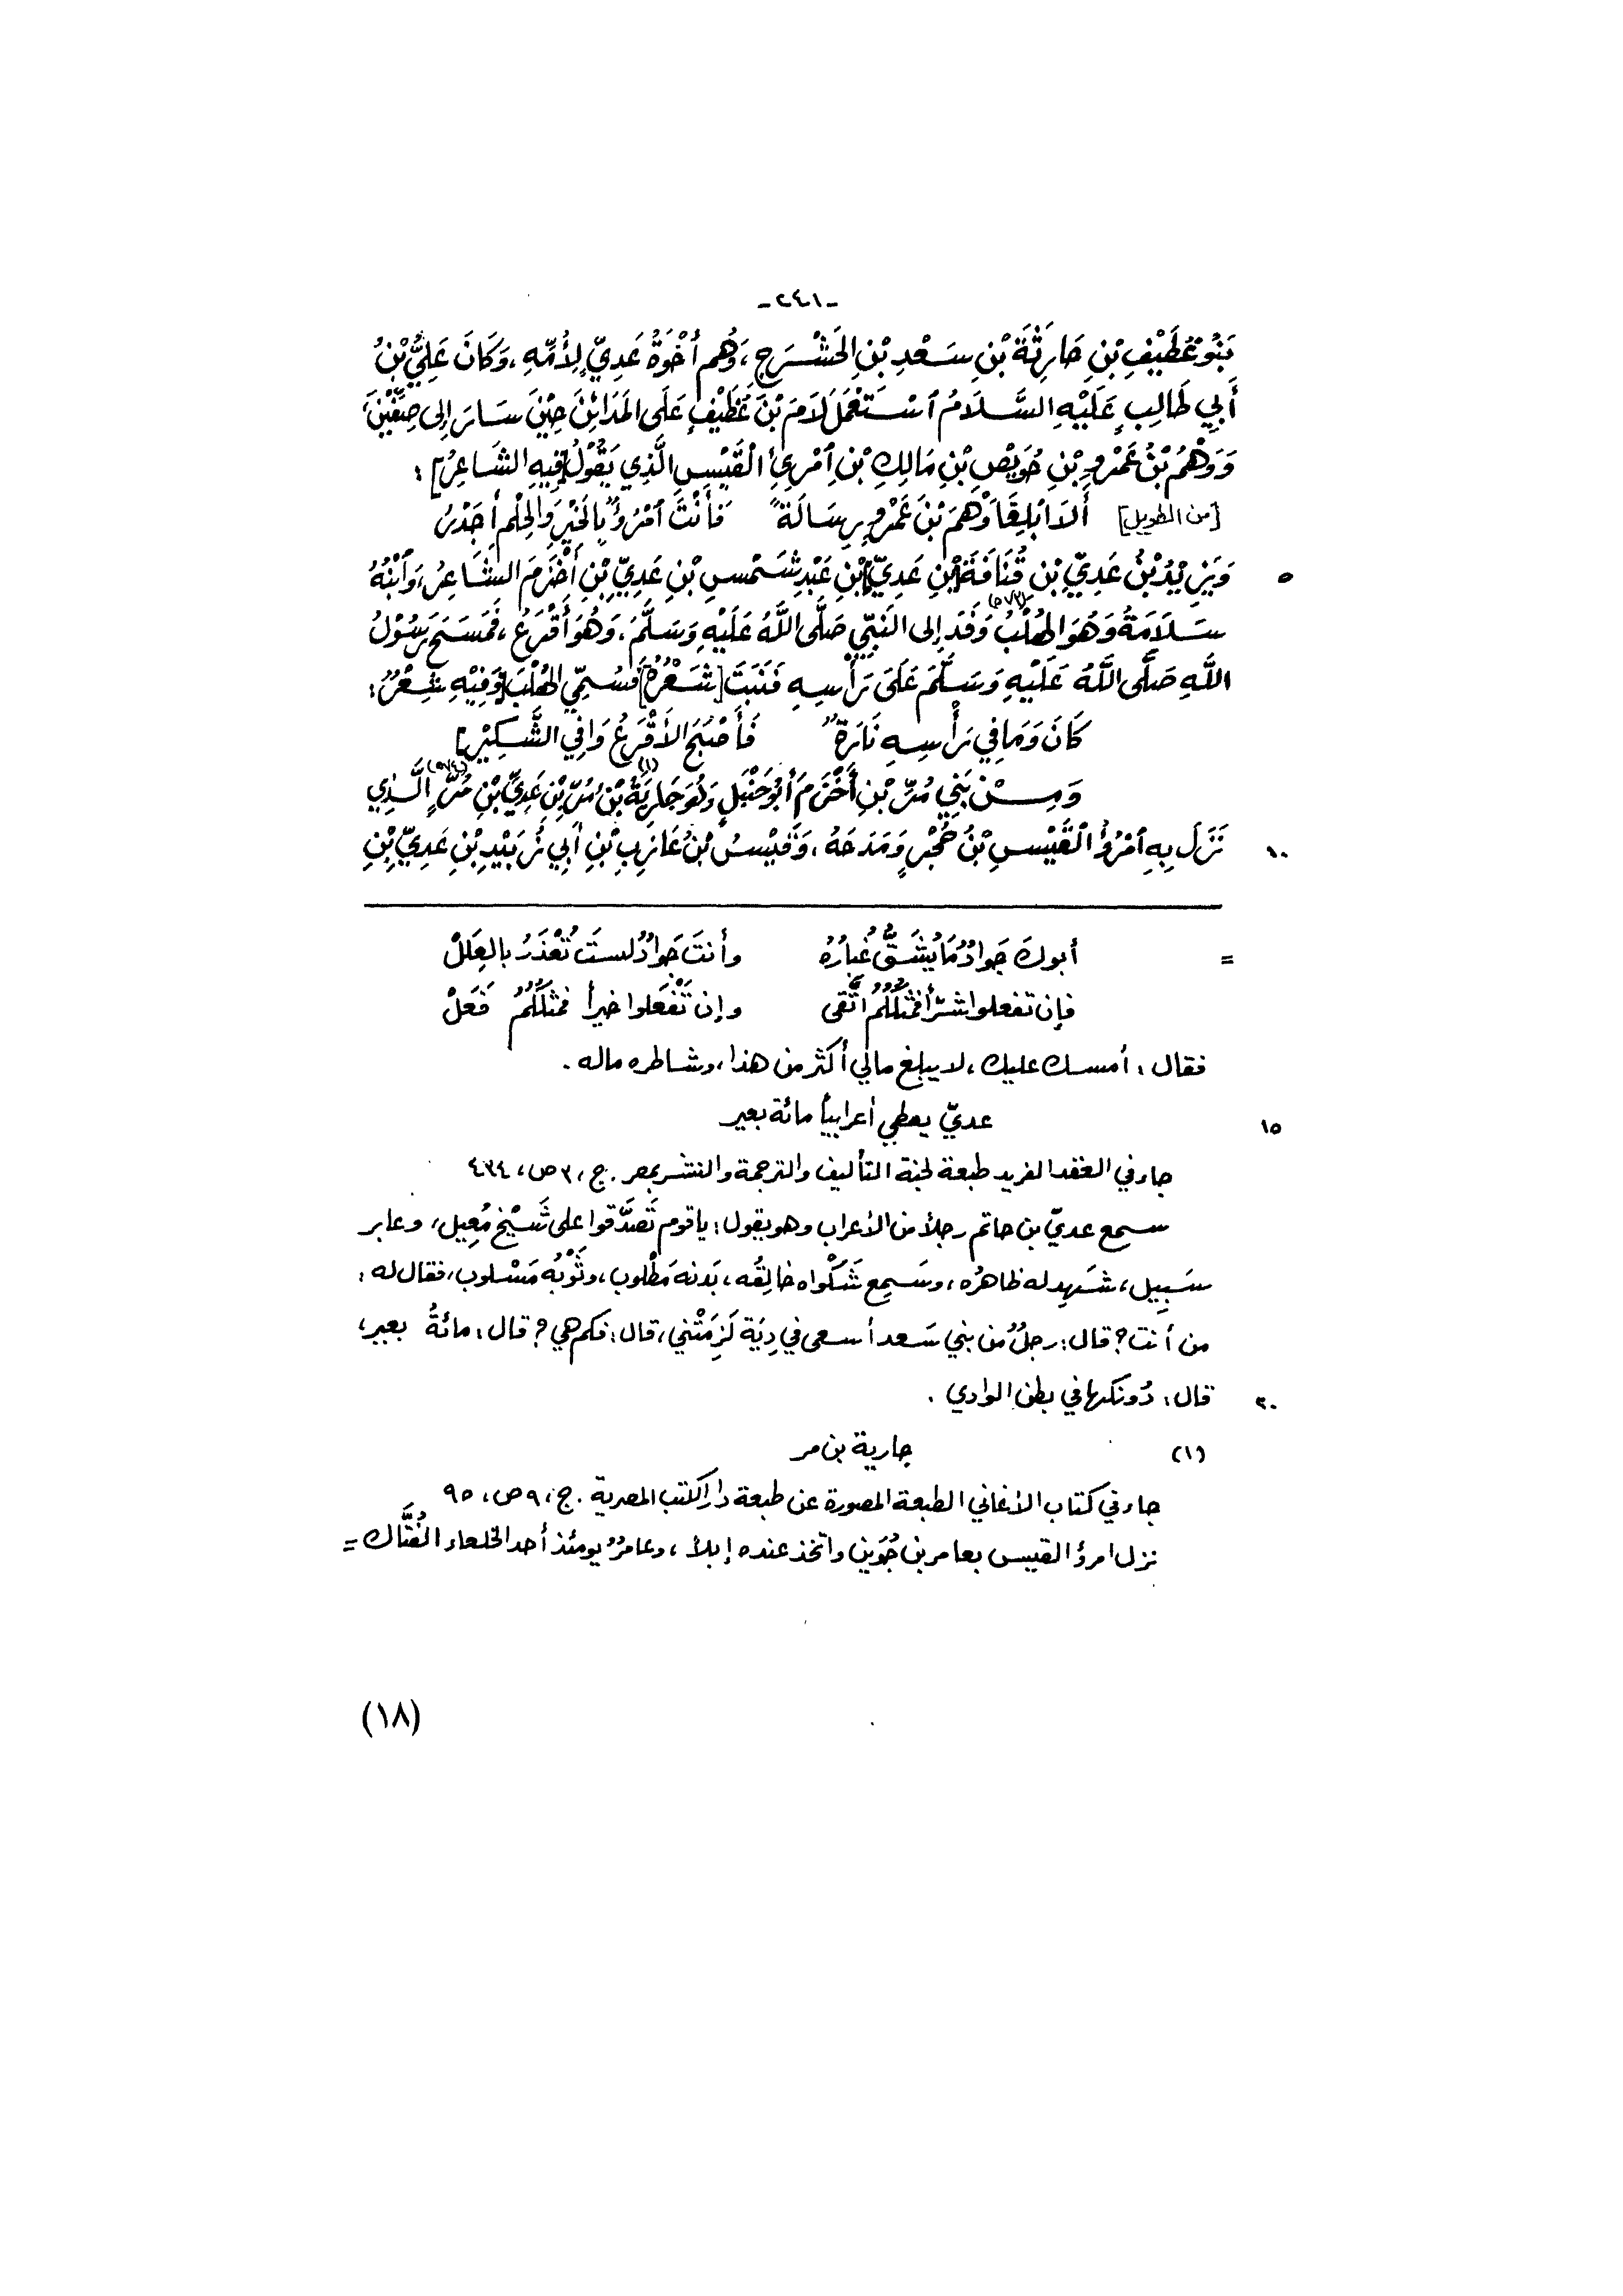 -٢٤١-
بَنُو غُطَيْفِ بْنِ حَارِثَةَ بْنِ سَعْدِ بْنِ الحَشْرَجِ، وَهُم أُخْوَةُ عَدِيٍّ لِأُمِّهِ، وَكَانَ عَلِيُّ بْنُ
أَبِي طَالِبٍ عَلَيْهِ السَّلَامُ ٱسْتَعْمَلَ لَامَ بْنَ غُطَيْفٍ عَلَى المَدَائِنَ حِيْنَ سَارَ إِلى صِفِّيْنَ،
وَوَهْمُ بْنُ عَمْرِو بْنِ حُوَيْصِ بْنِ مَالِكِ بْنِ ٱمْرِئِ ٱلْقَيْسِ الَّذِي يَقُوْلُ [فِيهِ الشَاعِرُ]:
[من الطويل] أَلَا ٱبْلِغَا وَهْمَ بْنَ عَمْرٍو رِسَالَةً فَأَنْتَ ٱمْرُؤٌ بِالخَيْرِ وَالحِلْمِ أَجْدَرُ
٥ وَيَزِيْدُ بْنُ عَدِيِّ بْنِ قُنَافَةَ [بْنِ عَدِيِّ] بْنِ عَبْدِ شَمْسِ بْنِ عَدِيِّ بْنِ أَخْزَمَ الشَاعِرُ، وَٱبْنُهُ
سَلَامَةُ وَهُوَ الهُلْبُ (٥٧٣) وَفَدَ إِلى النَبِيِّ صَلَّى اللَّهُ عَلَيْهِ وَسَلَّمَ، وَهُوَ أَقْرَعُ، فَمَسَحَ رَسُوْلُ
اللَّهِ صَلَّى اللَّهُ عَلَيْهِ وَسَلَّمَ عَلَى رَأْسِهِ فَنَبَتَ [شَعْرُهُ] فَسُمِّي الهُلْبَ [وَفِيْهِ شِعْرٌ:
كَانَ وَمَا فِي رَأْسِهِ نَارَةٌ فَأَصْبَحَ الأَقْرَعُ وَافِي الشَّكِيْرِ]
وَمِنْ بَنِي مُرِّ بْنِ أَخْزَمَ أَبُو حَنْبَلٍ وَهُوَ جَارِيَةُ (١) بْنُ مُرِّ بْنِ عَدِيِّ بْنِ مُرٍّ (٥٧٤) الَّذِي
١٠ نَزَلَ بِهِ ٱمْرُؤُ ٱلْقَيْسِ بْنُ حُجْرٍ وَمَدَحَهُ، وَقَيْسُ بْنُ عَازِبِ بْنِ أَبِي زُبَيْدِ بْنِ عَدِيِّ بْنِ
= أبوك جَوادٌ مَا يُشَقُّ غُبارُه وأنتَ جَوادٌ لستَ تُعْذَرُ بالعِلَلْ
فإن تفعلوا شرّاً فمثلُكُمُ اتَّقى وإن تَفْعَلوا خيراً فمثلُكُمُ فَعَلْ
فقال: أمسك عليك، لا يبلغ مالي أكثر من هذا، وشاطره ماله.
١٥ عديّ يعطي أعرابياً مائة بعير
جاء في العقد الفريد طبعة لجنة التأليف والترجمة والنشر بمصر. ج، ٣ ص، ٤٣٤
سمع عديّ بن حاتم رجلاً من الأعراب وهو يقول: يا قوم تَصَدَّقوا على شَيْخٍ مُعِيل، وعابر
سَبِيل، شَهِد له ظاهرُه، وسَمِع شَكْواه خالِقُه، بَدنه مَطْلوب، وثَوْبُه مَسْلوب، فقال له:
من أنت؟ قال: رجلٌ من بني سَعد أسعى في دِيَة لَزِمَتْني، قال: فكم هي؟ قال: مائةُ بعير،
٢٠ قال: دُونَكها في بطن الوادي.
(١) جارية بن مر
جاء في كتاب الأغاني الطبعة المصورة عن طبعة دار الكتب المصرية. ج، ٩ ص، ٩٥
نزل امرؤ القيس بعامر بن جُوَين واتخذ عنده إبلاً، وعامرٌ يومئذ أحد الخلعاء الفُتَّاك =
(١٨)